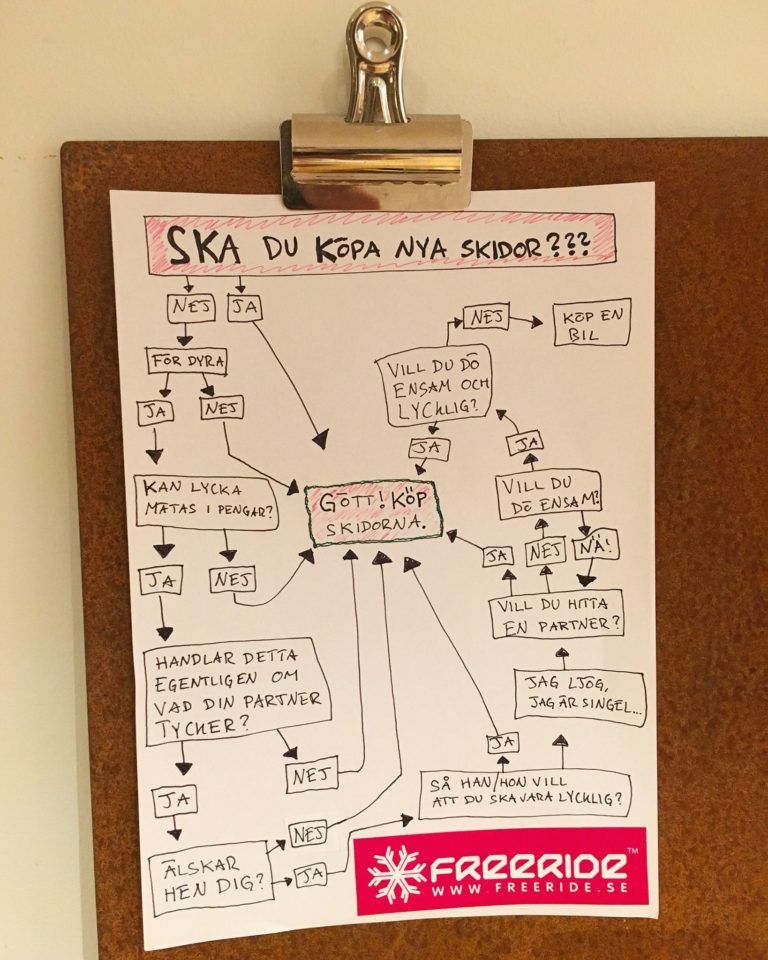 SKA DU KÖPA NYA SKIDOR???
NEJ
JA
FÖR DYRA
JA
NEJ
KAN LYCKA
MÄTAS I PENGAR?
JA
NEJ
HANDLAR DETTA
EGENTLIGEN OM
VAD DIN PARTNER
TYCKER?
JA
NEJ
ÄLSKAR
HEN DIG?
NEJ
JA
SÅ HAN/HON VILL
ATT DU SKA VARA LYCKLIG?
JA
JAG LJÖG,
JAG ÄR SINGEL...
VILL DU HITTA
EN PARTNER?
JA
NEJ
NÄ!
VILL DU
DÖ ENSAM?
JA
VILL DU DÖ
ENSAM OCH
LYCKLIG?
JA
NEJ
KÖP EN
BIL
GÖTT! KÖP
SKIDORNA.
FREERIDE™
WWW.FREERIDE.SE